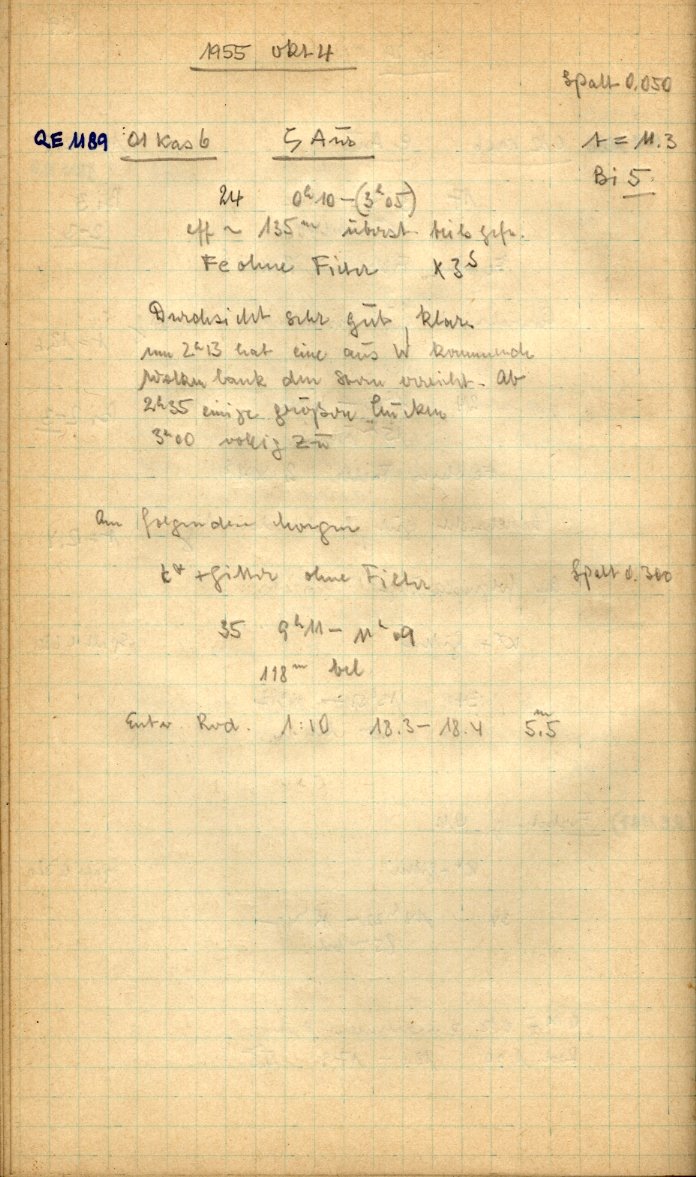 1955 Okt 4
Spalt 0.050
QE 1189 01 Kas 6 ζ Aur t = 11.3
Bi 5
24 0ʰ10 – (3ʰ05)
eff ~ 135ᵐ teils
Fe ohne Filter K 3ˢ
Durchsicht sehr gut, klar.
um 2ʰ13 hat eine aus W kommende
Wolkenbank den Stern erreicht. Ab
2ʰ35 einige größere Lücken
3ʰ00 völlig zu
Am folgenden Morgen
+ Gitter ohne Filter Spalt 0.300
35 9ʰ11 – 11ʰ09
118ᵐ bel
Entw. Rod. 1:10 18.3 – 18.4 5ᵐ.5